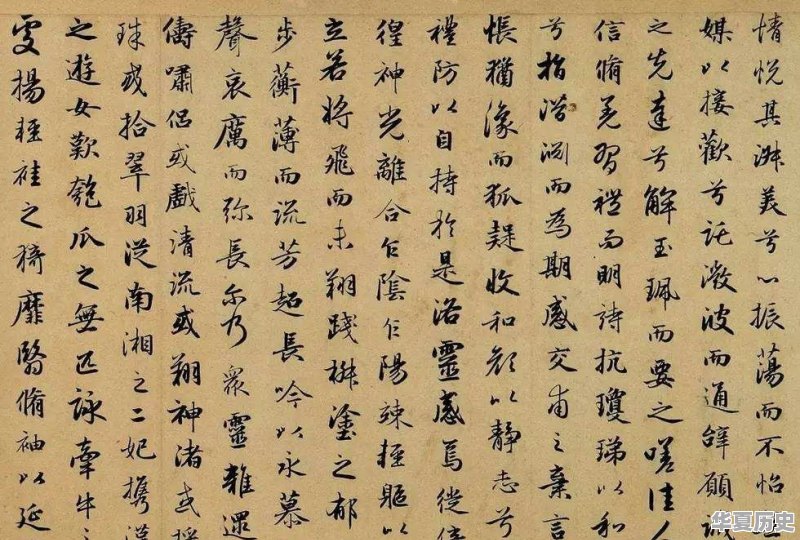 情悅其淑美兮心振蕩而不怡
媒以接歡兮託微波而通辭願誠
之先達兮解玉珮而要之嗟佳人
信脩羌習禮而明詩抗瓊珶以和
兮指潛淵而為期感交甫之棄言
悵猶豫而狐疑收和顏以靜志兮
禮防以自持於是洛靈感焉徙倚
徨神光離合乍陰乍陽竦輕軀以
立若將飛而未翔踐椒塗之郁
步蘅薄而流芳超長吟以永慕
聲哀厲而彌長尔乃眾靈雜遝
儔嘯侶或戲清流或翔神渚或採
珠或拾翠羽從南湘之二妃攜漢
之遊女歎匏瓜之無匹詠牽牛之
雯揚輕袿之猗靡翳脩袖以延
华夏历史